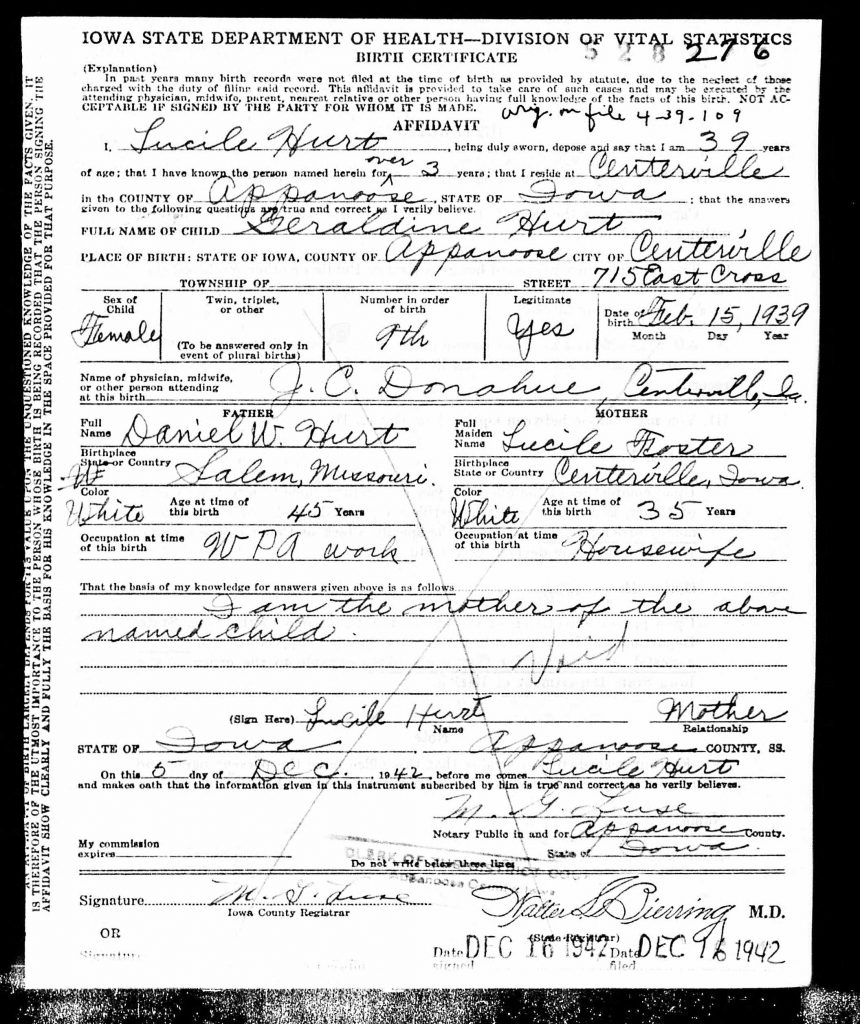 IOWA STATE DEPARTMENT OF HEALTH—DIVISION OF VITAL STATISTICS
528 276
BIRTH CERTIFICATE
(Explanation)
In past years many birth records were not filed at the time of birth as provided by statute, due to the neglect of those
charged with the duty of filing said record. This affidavit is provided to take care of such cases and may be executed by the
attending physician, midwife, parent, nearest relative or other person having full knowledge of the facts of this birth. NOT AC-
CEPTABLE IF SIGNED BY THE PARTY FOR WHOM IT IS MADE.
orig. on file 4-39-109
AFFIDAVIT
I, Lucile Hurt, being duly sworn, depose and say that I am 39 years
of age; that I have known the person named herein for over 3 years; that I reside at Centerville
in the COUNTY OF Appanoose, STATE OF Iowa; that the answers
given to the following questions are true and correct as I verily believe.
FULL NAME OF CHILD Geraldine Hurt
PLACE OF BIRTH: STATE OF IOWA, COUNTY OF Appanoose CITY OF Centerville
TOWNSHIP OF STREET 715 East Cross
Sex of Child Female
Twin, triplet, or other
(To be answered only in event of plural births)
Number in order of birth 9th
Legitimate Yes
Date of birth Feb. 15, 1939
Month Day Year
Name of physician, midwife,
or other person attending
at this birth J. C. Donahue, Centerville, Ia.
FATHER
Full Name Daniel W. Hurt
Birthplace State or Country Salem, Missouri.
Color White Age at time of this birth 45 Years
Occupation at time of this birth WPA work
MOTHER
Full Maiden Name Lucile Foster
Birthplace State or Country Centerville, Iowa
Color White Age at time of this birth 35 Years
Occupation at time of this birth Housewife
That the basis of my knowledge for answers given above is as follows
I am the mother of the above
named child.
Void
(Sign Here) Lucile Hurt Mother
Name Relationship
STATE OF Iowa, Appanoose COUNTY, SS.
On this 5 day of Dec. 1942, before me comes Lucile Hurt
and makes oath that the information given in this instrument subscribed by him is true and correct as he verily believes.
M. G. Luse
Notary Public in and for Appanoose County.
My commission
expires State of Iowa.
CLERK OF DISTRICT COURT
Appanoose County, Iowa
Do not write below these lines
Signature M. G. Luse
Iowa County Registrar
Walter L. Bierring M.D.
(State Registrar)
OR
Signature
Date signed DEC 16 1942 Date filed DEC 16 1942
IS THEREFORE OF THE UTMOST IMPORTANCE TO THE PERSON WHOSE BIRTH IS BEING RECORDED THAT THE PERSON SIGNING THE
AFFIDAVIT SHOW CLEARLY AND FULLY THE BASIS FOR HIS KNOWLEDGE IN THE SPACE PROVIDED FOR THAT PURPOSE.